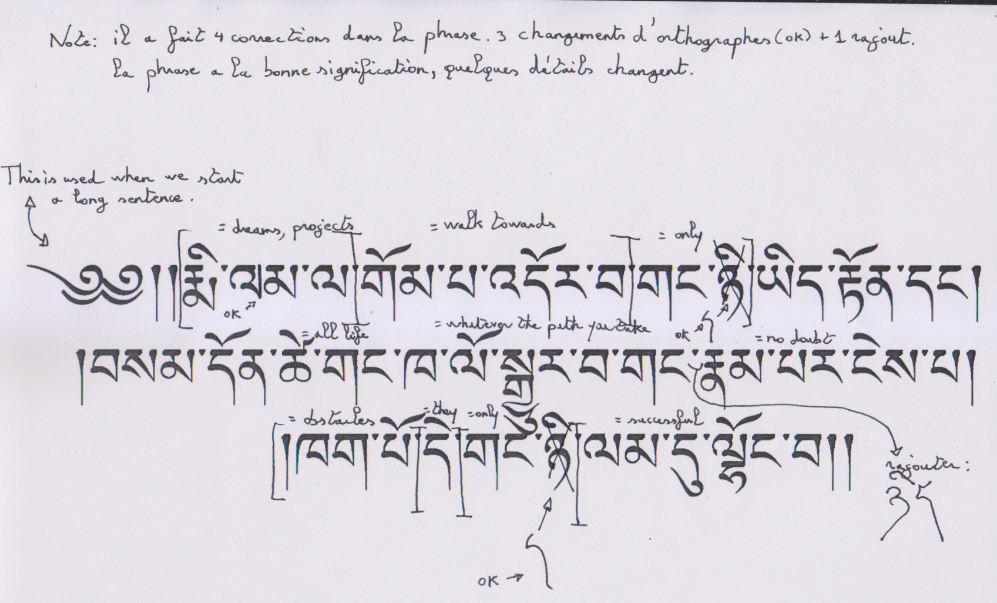 Note: il a fait 4 corrections dans la phrase. 3 changements d'orthographes (OK) + 1 raJout.
La phrase a la bonne signification, quelques détails changent.
This is used when we start
a long sentence.
= dreams, projects = walk towards = only
༄༅།།རྨི་ལམ་ལ་གོམ་པ་འདོར་བ་གང་ཉི་ཡིད་རྟོན་དང།
OK
= all life = whatever the path you take OK = no doubt
།བསམ་དོན་ཚེ་གང་ཁ་ལོ་སྒྱུར་བ་གང་རྣམ་པར་ངེས་པ།
= obstacles = they = only = successful
།ཁག་པོ་དེ་གང་ཉི་ལམ་དུ་ལྷོང་བ།།
rajouter:
OK